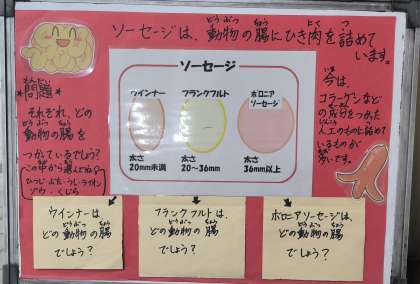 ソーセージは、動物の腸にひき肉を詰めて
います。
*問題*
それぞれ、どの
動物の腸を
つかっているでしょう?
この中から選んでね!
ひつじ・ぶた・うし・ライオン
ゾウ・くじら
ソーセージ
ウインナー
太さ
20mm未満
フランクフルト
太さ
20~36mm
ボロニア
ソーセージ
太さ
36mm以上
今は、
コラーゲンなど
の成分をつかった
人工のものに詰めて
いるものが
多いです。
ウインナーは、
どの動物の腸
でしょう?
フランクフルトは、
どの動物の腸
でしょう?
ボロニアソーセージは、
どの動物の腸
でしょう?